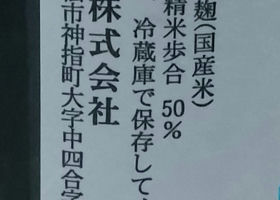 麹(国産米)
精米歩合 50%
冷蔵庫で保存して
株式会社
市神指町大字中四合字